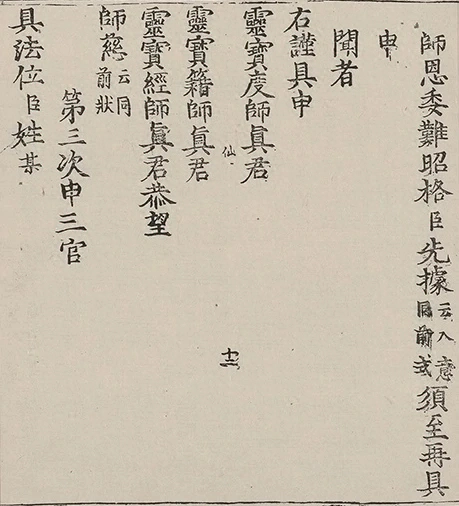 師恩委難昭格臣先據入意云同前式須至再具
申
聞者
右謹具申
靈寶度師眞君
仙 十二
靈寶籍師眞君
靈寶經師眞君恭望
師慈云同前狀
第三次申三官
具法位臣姓某